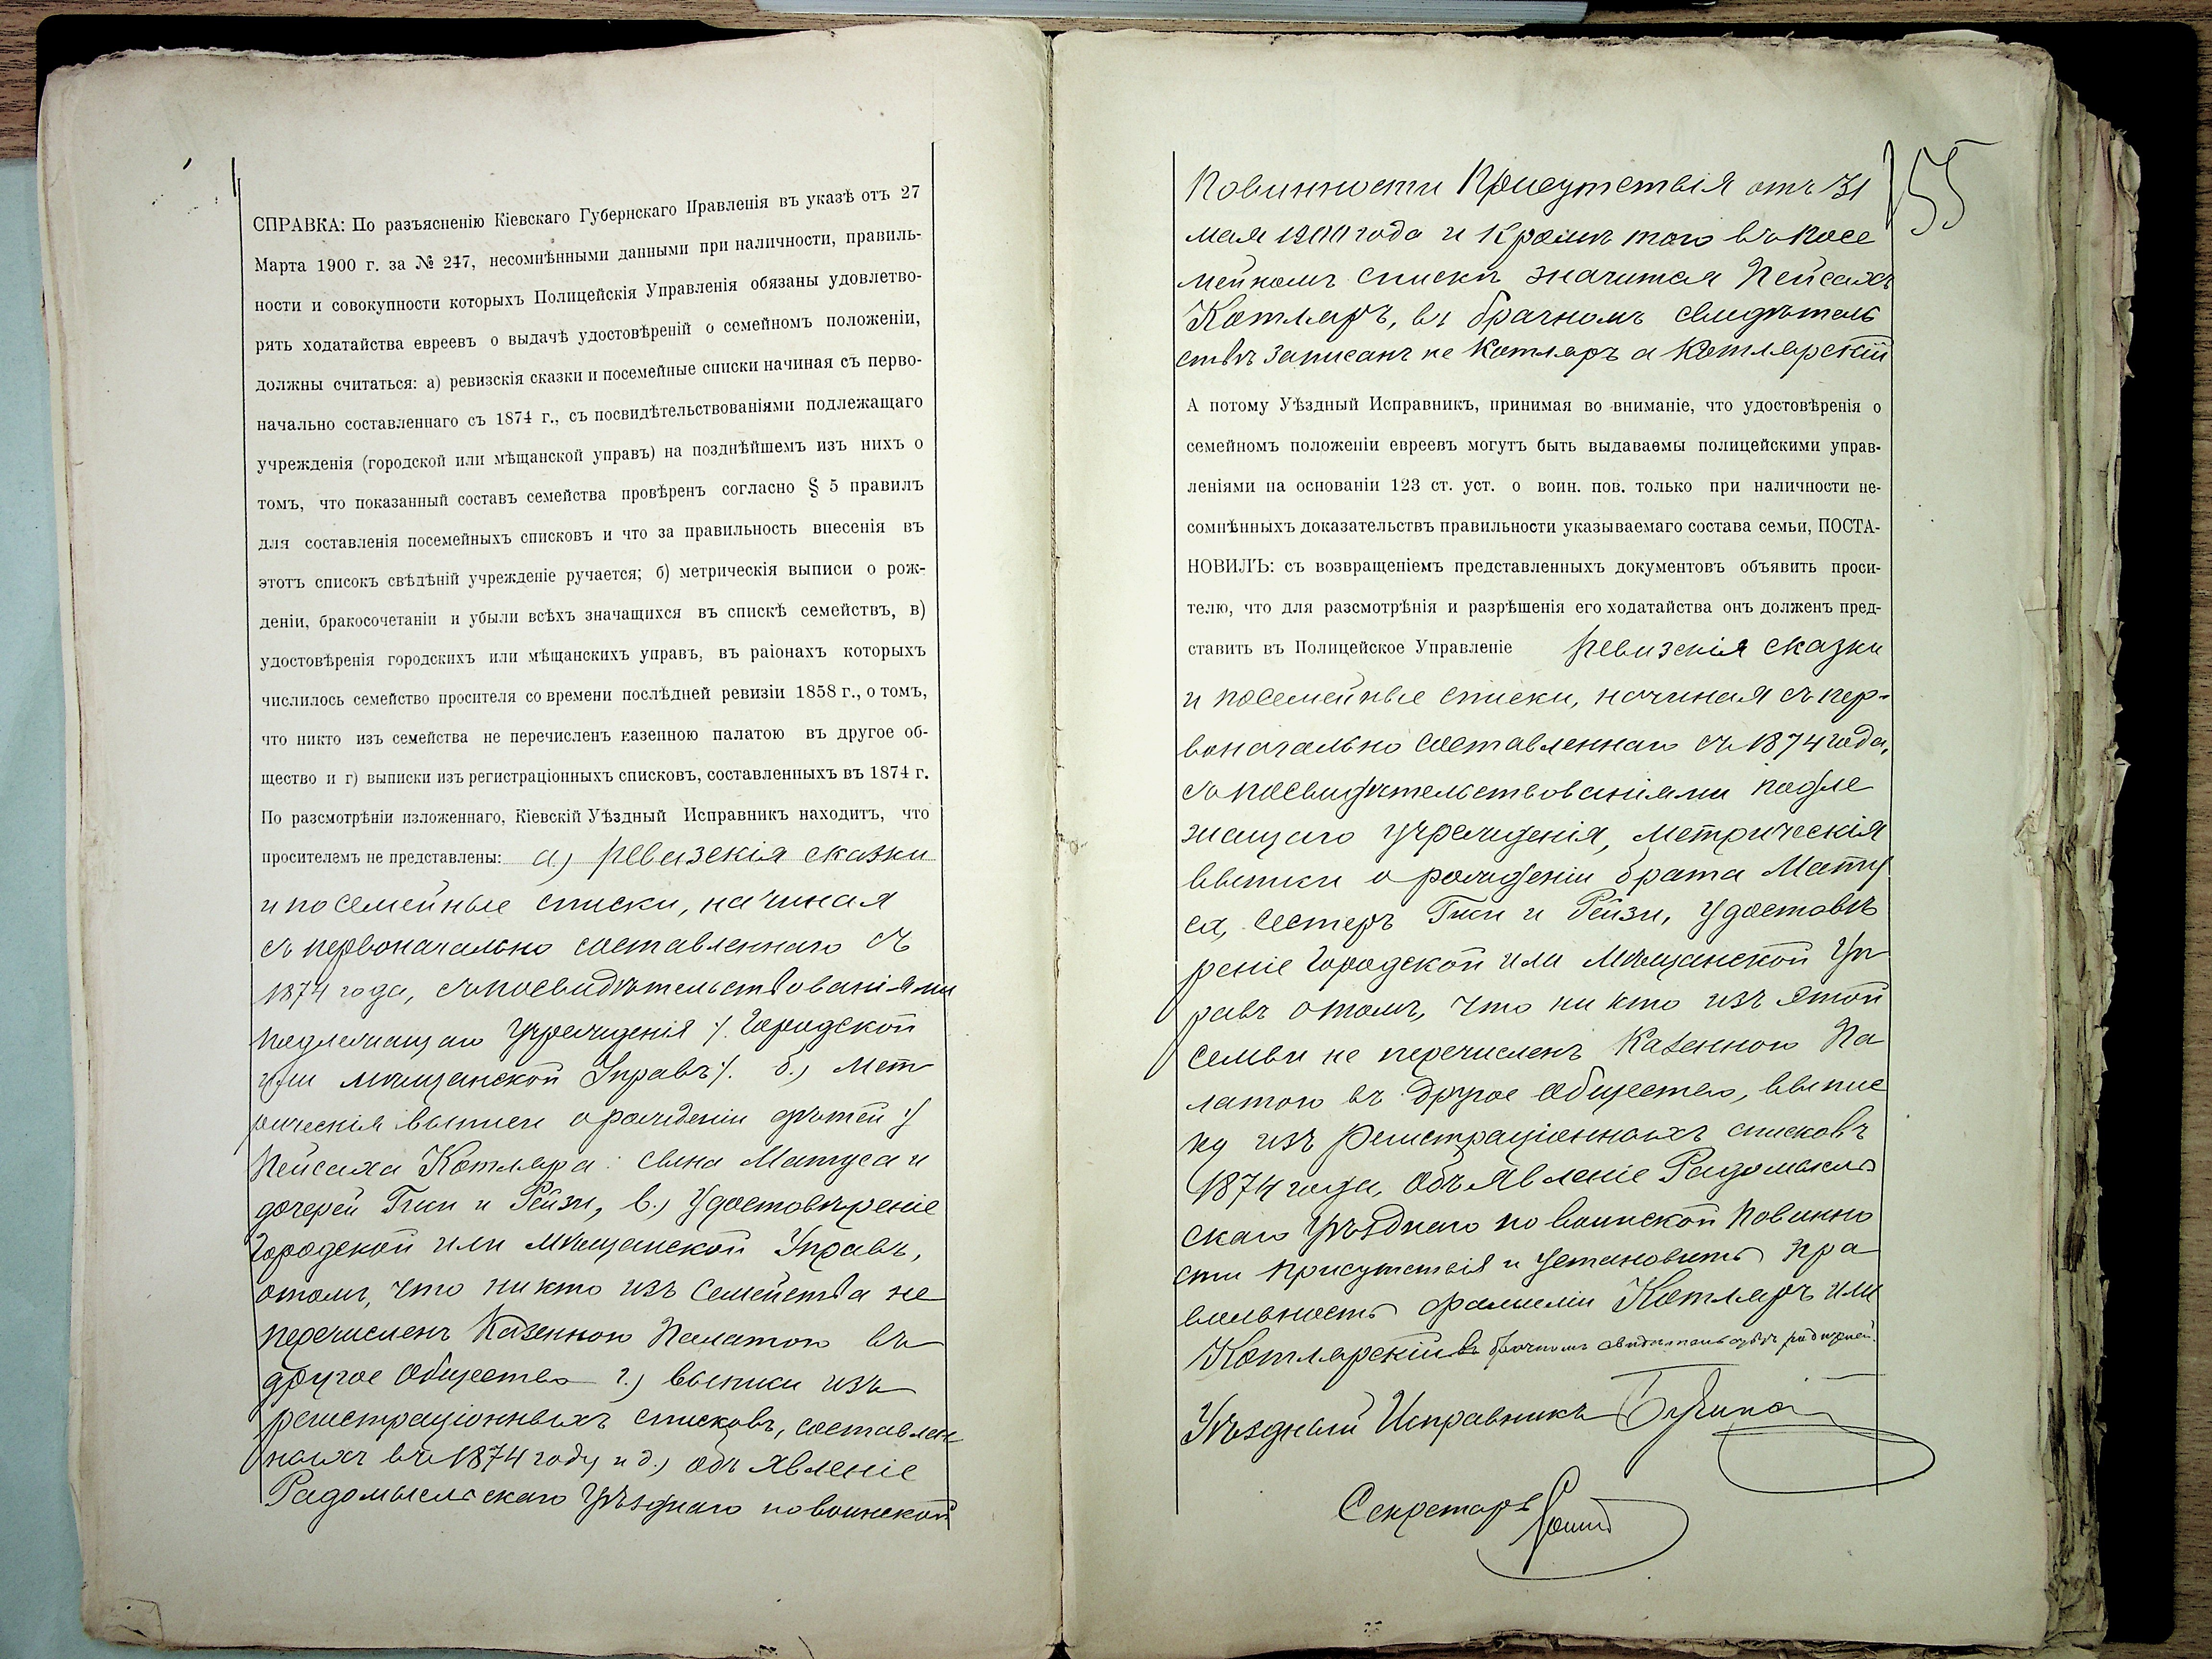 СПРАВКА: По разъясненію Кіевскаго Губернскаго Правленія въ указѣ отъ 27
Марта 1900 г. за № 247, несомнѣнными данными при наличности, правиль-
ности и совокупности которыхъ Полицейскія Управленія обязаны удовлетво-
рять ходатайства евреевъ о выдачѣ удостовѣреній о семейномъ положеніи,
должны считаться: а) ревизскія сказки и посемейные списки начиная съ перво-
начально составленнаго съ 1874 г., съ посвидѣтельствованіями подлежащаго
учрежденія (городской или мѣщанской управъ) на позднѣйшемъ изъ нихъ о
томъ, что показанный составъ семейства провѣренъ согласно § 5 правилъ
для составленія посемейныхъ списковъ и что за правильность внесенія въ
этотъ списокъ свѣдѣній учрежденіе ручается; б) метрическія выписи о рож-
деніи, бракосочетаніи и убыли всѣхъ значащихся въ спискѣ семействъ, в)
удостовѣренія городскихъ или мѣщанскихъ управъ, въ раіонахъ которыхъ
числилось семейство просителя со времени послѣдней ревизіи 1858 г., о томъ,
что никто изъ семейства не перечисленъ казенною палатою въ другое об-
щество и г) выписки изъ регистраціонныхъ списковъ, составленныхъ въ 1874 г.
По разсмотрѣніи изложеннаго, Кіевскій Уѣздный Исправникъ находитъ, что
просителемъ не представлены: а) ревизскія сказки
и посемейные списки, начиная
съ первоначально составленнаго съ
1874 года, съ посвидѣтельствованіями
подлежащаго Учрежденія /. Городской
или мѣщанской Управъ /. б.) Мет
рическія выписи о рожденіи дѣтей у
Пейсаха Котляра: сына Матуса и
дочерей Гити и Рейзи, в.) Удостовѣреніе
Городской или Мѣщанской Управъ,
отомъ, что никто изъ Семейства не
перечисленъ Казенною Палатою въ
другое Общество г.) выписки изъ
регистраціонныхъ списковъ, составлен
ныхъ въ 1874 году и д.) объявленіе
Радомысльскаго Уѣзднаго по воинской
155
Повинности Присутствія отъ 31
мая 1900 года и Кромѣ того въ посе
мейномъ спискѣ значится Пейсахъ
Котляръ, въ брачномъ свидѣтель
ствѣ записанъ не Котляръ а Котлярскій
А потому Уѣздный Исправникъ, принимая во вниманіе, что удостовѣренія о
семейномъ положеніи евреевъ могутъ быть выдаваемы полицейскими управ-
леніями на основаніи 123 ст. уст. о воин. пов. только при наличности не-
сомнѣнныхъ доказательствъ правильности указываемаго состава семьи, ПОСТА-
НОВИЛЪ: съ возвращеніемъ представленныхъ документовъ объявить проси-
телю, что для разсмотрѣнія и разрѣшенія его ходатайства онъ долженъ пред-
ставить въ Полицейское Управленіе ревизскія сказки
и посемейные списки, начиная съ пер-
воначально составленнаго съ 1874 года,
съ посвидѣтельствованіями подле
жащаго учрежденія, Метрическія
выписи о рожденіи брата Мату
са, Сестеръ Гити и Рейзи, Удостовѣ
реніе Городской или Мѣщанской Уп
равъ отомъ, что никто изъ этой
семьи не перечисленъ Казенною Па
латою въ другое Общество, выпис
ку изъ регистраціонныхъ списковъ
1874 года, Объявленіе Радомысль
скаго Уѣзднаго по воинской Повинно
сти присутствія и установить пра
вильность фамиліи Котляръ или
Котлярскій въ брачномъ свидѣтельствѣ
Уѣздный Исправникъ
Секретарь